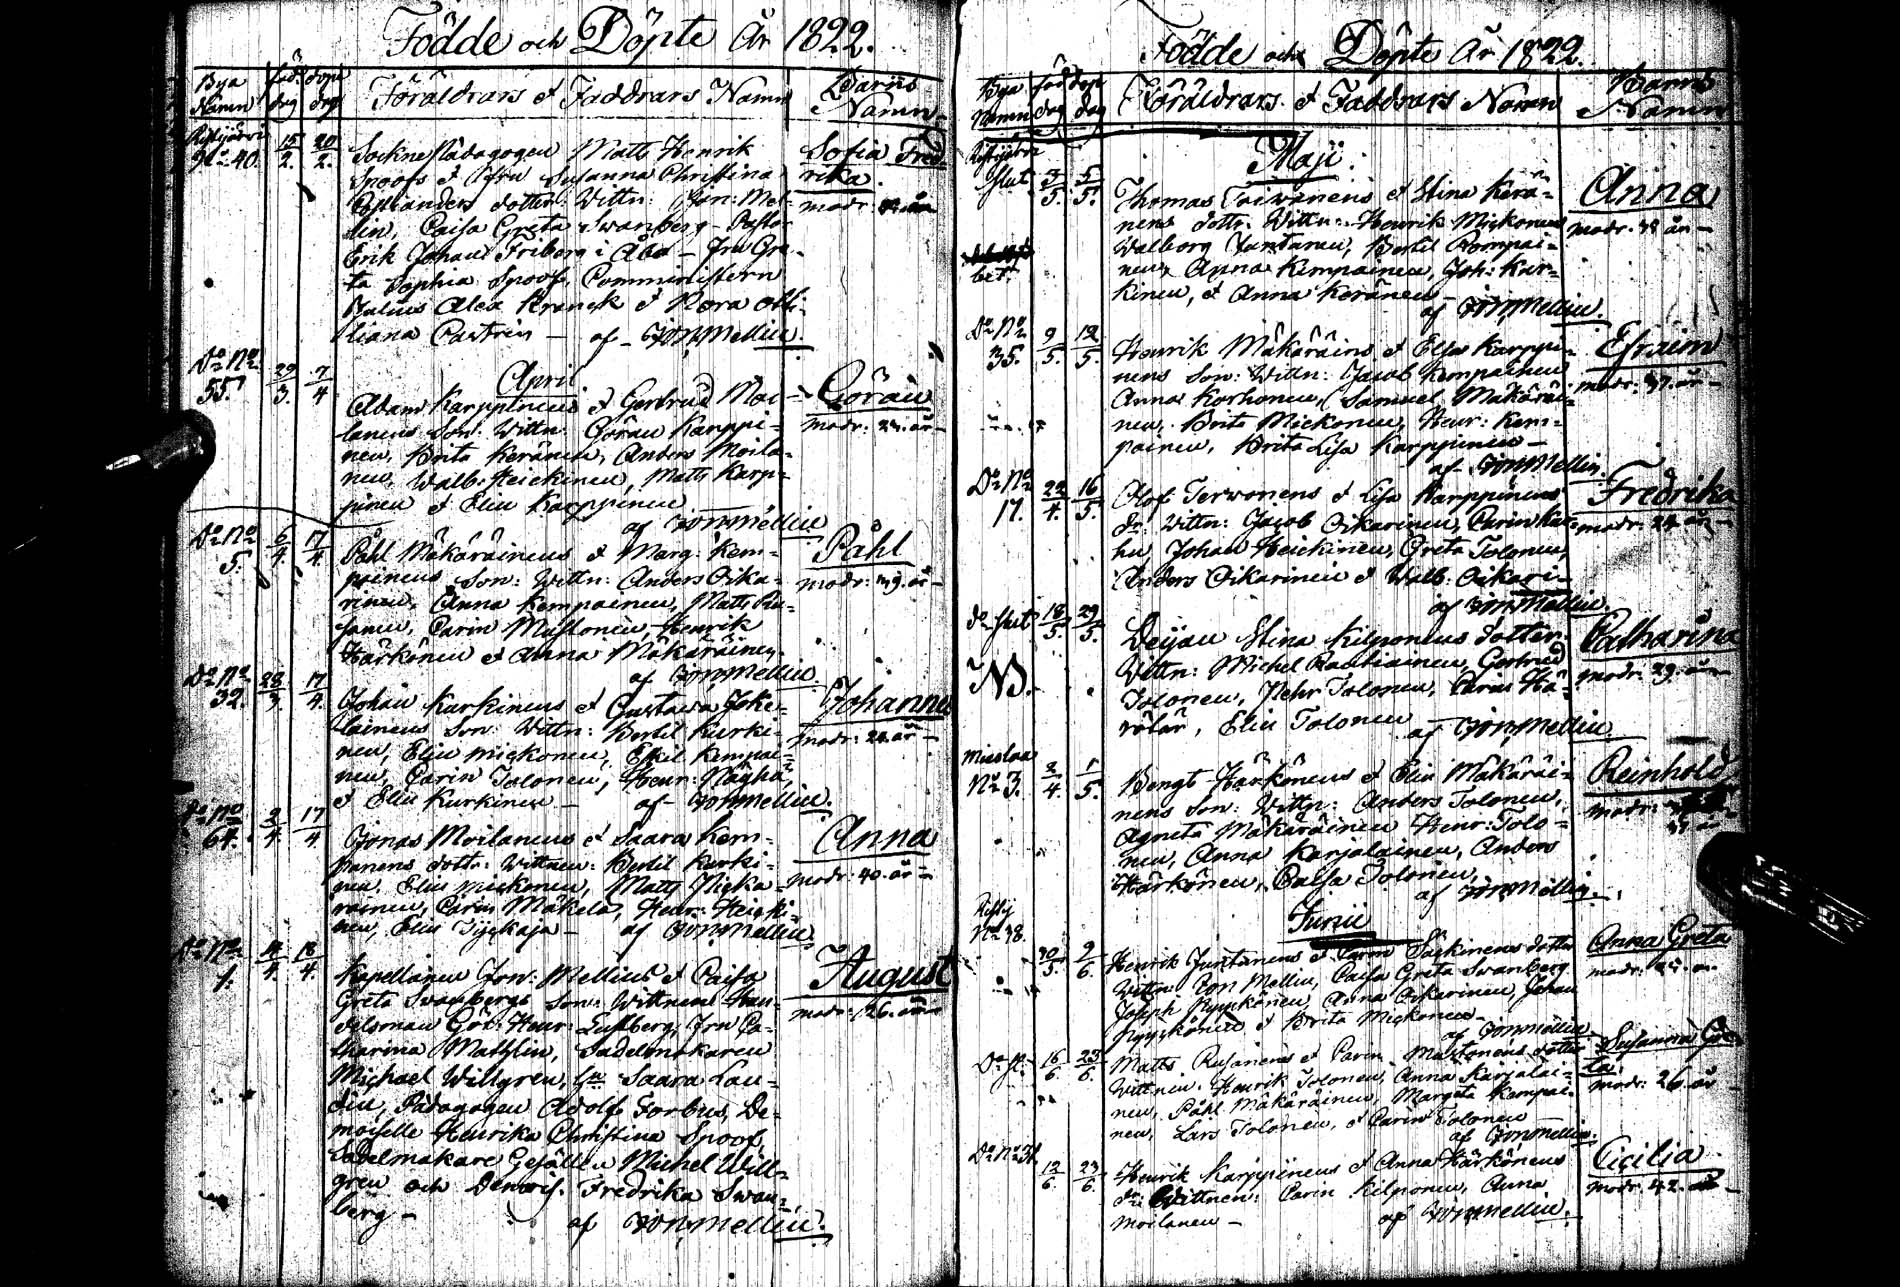 Födde och Döpte År 1822.
Bya Namn
föd: dag
döpt dag
Föräldrars & Faddrars Namn
Barns Namn
No 40.
15/2.
20/2.
Sockne Pädagogen Matts Henrik
Spoofs & Susanna Christina
dotter: Wittn: Jon: Mel-
lin, Caisa Greta Swanberg - Pastor
Erik Johan Friborg i Åbo - Fru Gre-
ta Sophia Spoof, Comministern
Julius Alex Kranck & Nora Otti-
liana Castrén - af JonMellin.
Sofia Fred-
rika
modr:
April
Do No 55.
29/3.
7/4
Adam Karppinens & Gertrud Moi-
lanens Son: Wittn: Göran Karppi-
nen, Brita Keränen, Anders Moila-
nen, Walb: Heickinen, Matts Karp-
pinen & Elin Karppinen
af JonMellin
Göran
modr: år
Do No 5.
6/4.
17/4.
Påhl Mäkäräinens & Marg: Kem-
painens Son: Wittn: Anders Oika-
rinen, Anna Kempainen, Matts Ru-
sanen, Carin Mustonen, Henrik
Härkönen & Anna Mäkäräinen
af JonMellin.
Påhl
modr: 39. år
Do No 32.
28/3.
17/4.
Johan Kurkinens & Gustava Joke-
lainens Son: Wittn: Bertil Kurki-
nen, Elin Mickonen, Eskil Kempai-
nen, Carin Tolonen, Henr:
& Elin Kurkinen - af JonMellin.
Johannes
modr: 24. år -
Do No 64.
2/4.
17/4
Jonas Moilanens & Saara Kem-
panens dottr: Wittnen: Bertil Kurki-
nen, Elin Mickonen, Matts
Carin Mäkelä, Henr: Heicki-
nen, Elin - af JonMellin.
Anna
modr: 40. år -
Do No 1.
14/4.
18/4.
Kapellanen Jon: Mellins & Caisa
Greta Swanbergs Son: Wittnen: Han-
delsman Gör: Henr: Fru Ca-
tharina Mathlin, Sadelmakaren
Michael Willgren, Saara Lau-
din, Pädagogen Adolf Forbus, De-
moiselle Henrika Christina Spoof,
Sadelmakare Gesällen Michel Will-
gren och Demois. Fredrika Swan-
berg -
af JonMellin.
August
modr: 26. år
Födde och Döpte År 1822.
Bya Namn
föd dag
döp dag
Föräldrars & Faddrars Namn
Barns Namn
Maji
3/5.
5/5.
Thomas Toivanens & Stina Kerä-
nens dottr: Wittn: Henrik Mickonen
Walborg Bertil Kempai-
nen Anna Kempainen, Joh: Kur-
kinen, & Anna Keränen
af JonMellin.
Anna
modr: 38 år -
Do No 35.
9/5.
12/5.
Henrik Mäkäräins & Elsas Karppi-
nens Son: Wittn: Jacob Kempainen
Anna Korhonen, Samuel Mäkäräi-
nen, Brita Mickonen, Henr: Kem-
painen, Brita Lisa Karppinen -
af JonMellin.
Efraim
modr: 37. år -
Do No 17.
22/4.
16/5.
Olof Terwonens & Lisa Karppinens
dr. Wittn: Jacob Oikarinen, Carin Kar-
hu Johan Heickinen, Greta Tolonen,
Anders Oikarinen & Walb: Oikari-
af JonMellin.
Fredrika
modr: 24 år -
do
18/5.
29/5.
NB.
Deyan Stina Kilponens dotter
Wittn: Michel Rautiainen, Gertrud
Tolonen, Pehr Tolonen, Carin Hä-
Elin Tolonen - af JonMellin.
Catharina
modr: 23. år
No 3.
2/4.
1/5.
Bengt Härkönens & Elin Mäkäräi-
nens Son: Wittn: Anders Tolonen,
Agneta Mäkäräinen Henr: Tolo-
nen, Anna Karjalainen, Anders
Härkönen, Caisa Tolonen,
af JonMellin.
Reinhold
modr:
Junii
No 38.
30/5.
9/6.
Henrik Juntunens & Carin dotter
Wittn: Jon Mellin, Caisa Greta Swanberg
Joseph Anna Oikarinen, Johan
& Brita Mickonen
af JonMellin
Anna Greta
modr:
Do
16/6.
23/6.
Matts Rusanens & Carin Mustonens dotter
Wittnen: Henrik Tolonen, Anna Karjalai-
nen, Påhl Mäkäräinen, Margeta Kempai-
nen, Lars Tolonen, & Carin Tolonen
af JonMellin.
Susanna Gre-
ta
modr: 26. år
Do No 31
12/6.
23/6.
Henrik Karppinens & Anna Härkönens
dr: Wittnen: Carin Kilponen, Anna
Moilanen -
af JonMellin.
Cicilia
modr: 42. år -